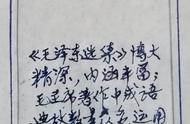 《毛泽东选集》博大
精深，内涵丰富；
毛主席著作中成语
运用